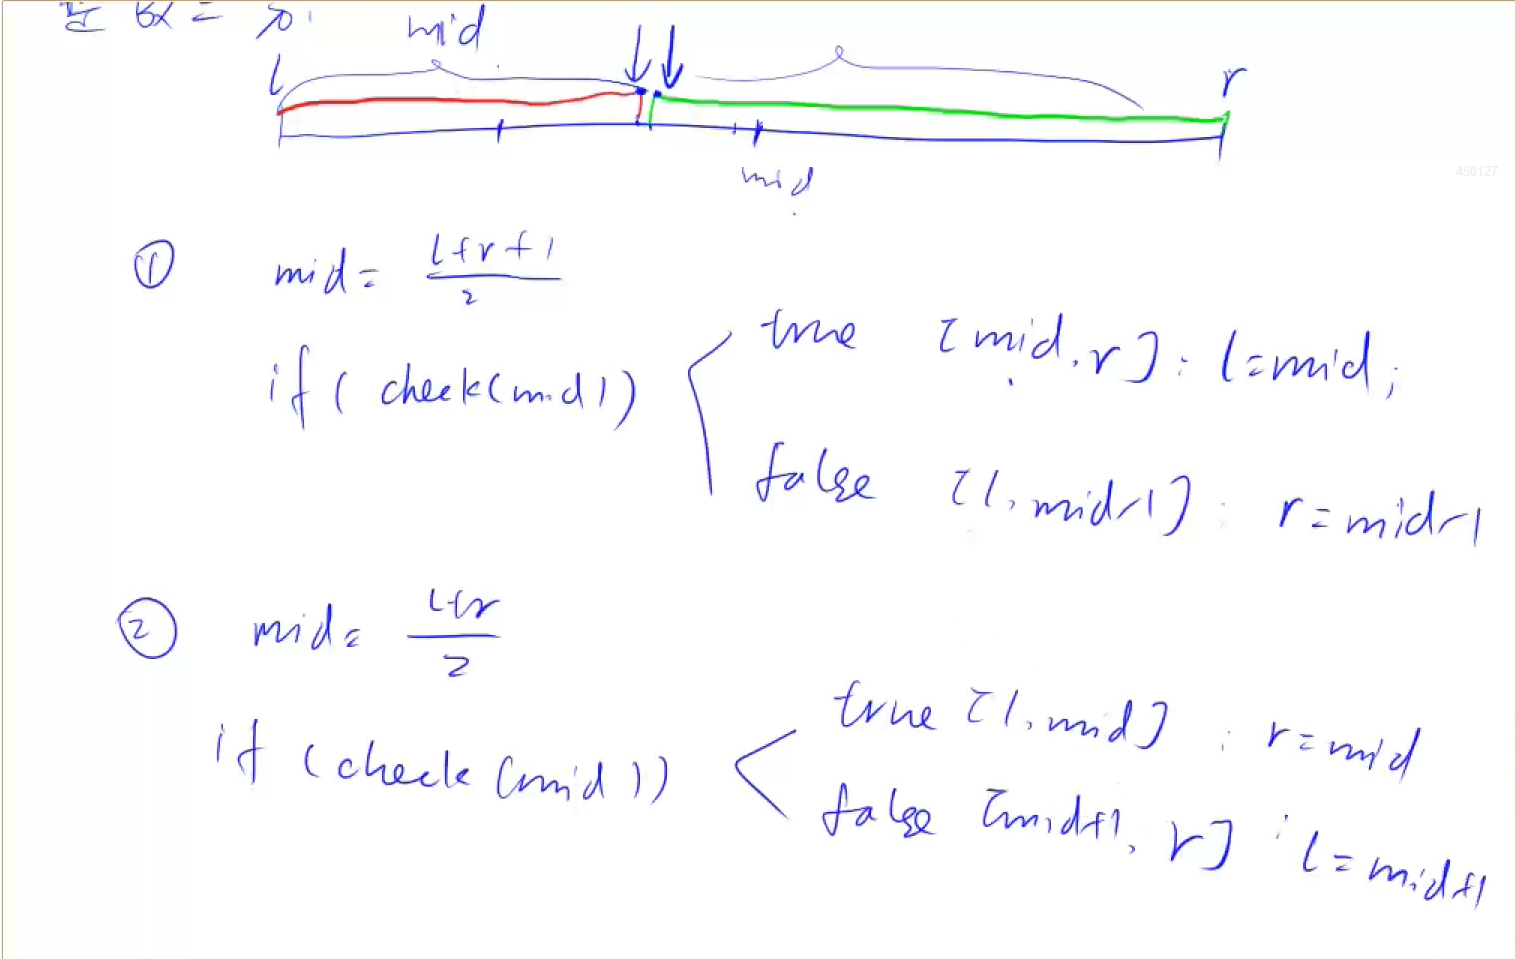 mid
l r
mid
450127
① mid = l+r+1 / 2
if ( check(mid)) true [mid, r] : l=mid;
false [l, mid-1] : r=mid-1
② mid = l+r / 2
if (check(mid)) true [l, mid] : r=mid
false [mid+1, r] : l=mid+1